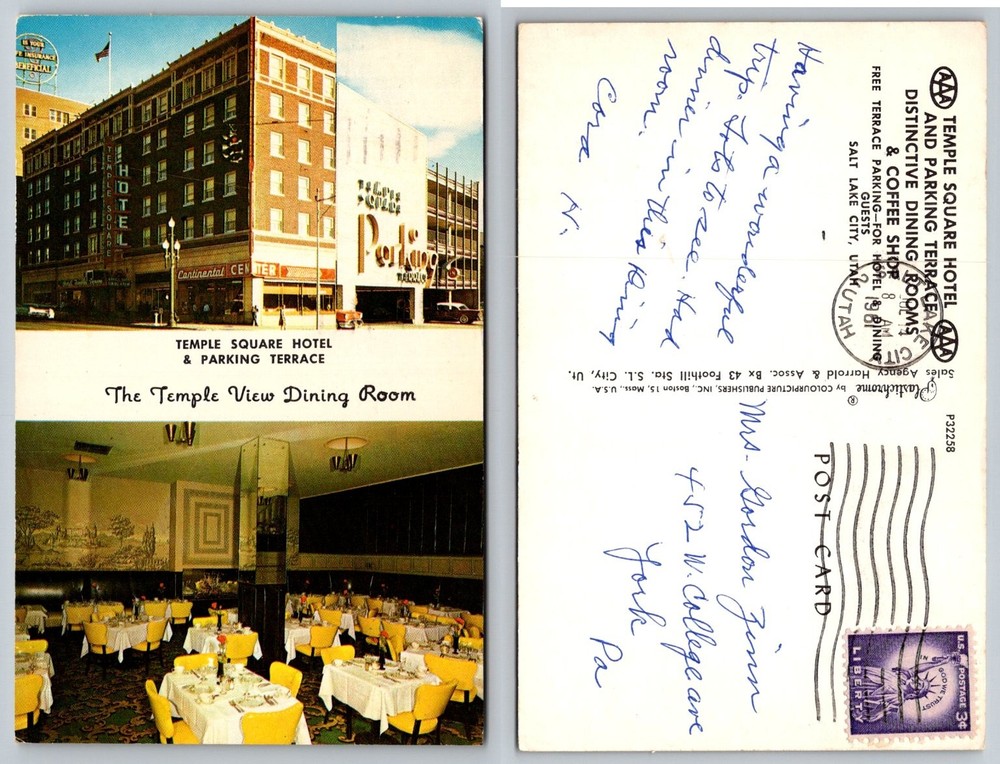 IS YOUR
LIFE INSURANCE
BENEFICIAL
HOTEL
TEMPLE SQUARE
Continental CENTER
TEMPLE
SQUARE
Parking
TERRACE
TEMPLE SQUARE HOTEL
& PARKING TERRACE
The Temple View Dining Room
AAA TEMPLE SQUARE HOTEL AAA
AND PARKING TERRACE
DISTINCTIVE DINING ROOMS
& COFFEE SHOP
FREE TERRACE PARKING—FOR HOTEL & DINING
GUESTS
SALT LAKE CITY, UTAH
Having a wonderful
trip. Lots to see. Had
dinner in this dining
room.
Cora N.
Plastichrome ® by COLOURPICTURE PUBLISHERS, INC., Boston 15, Mass., U.S.A.
Sales Agency Harrold & Assoc. Bx 43 Foothill Sta. S.L. City, Ut.
P32258
POST CARD
LAKE CITY
JUL
8 AM
1961
UTAH
Mrs. Gordon Zinn
452 W. College ave
York Pa
U.S. POSTAGE 3¢
IN GOD WE TRUST
LIBERTY